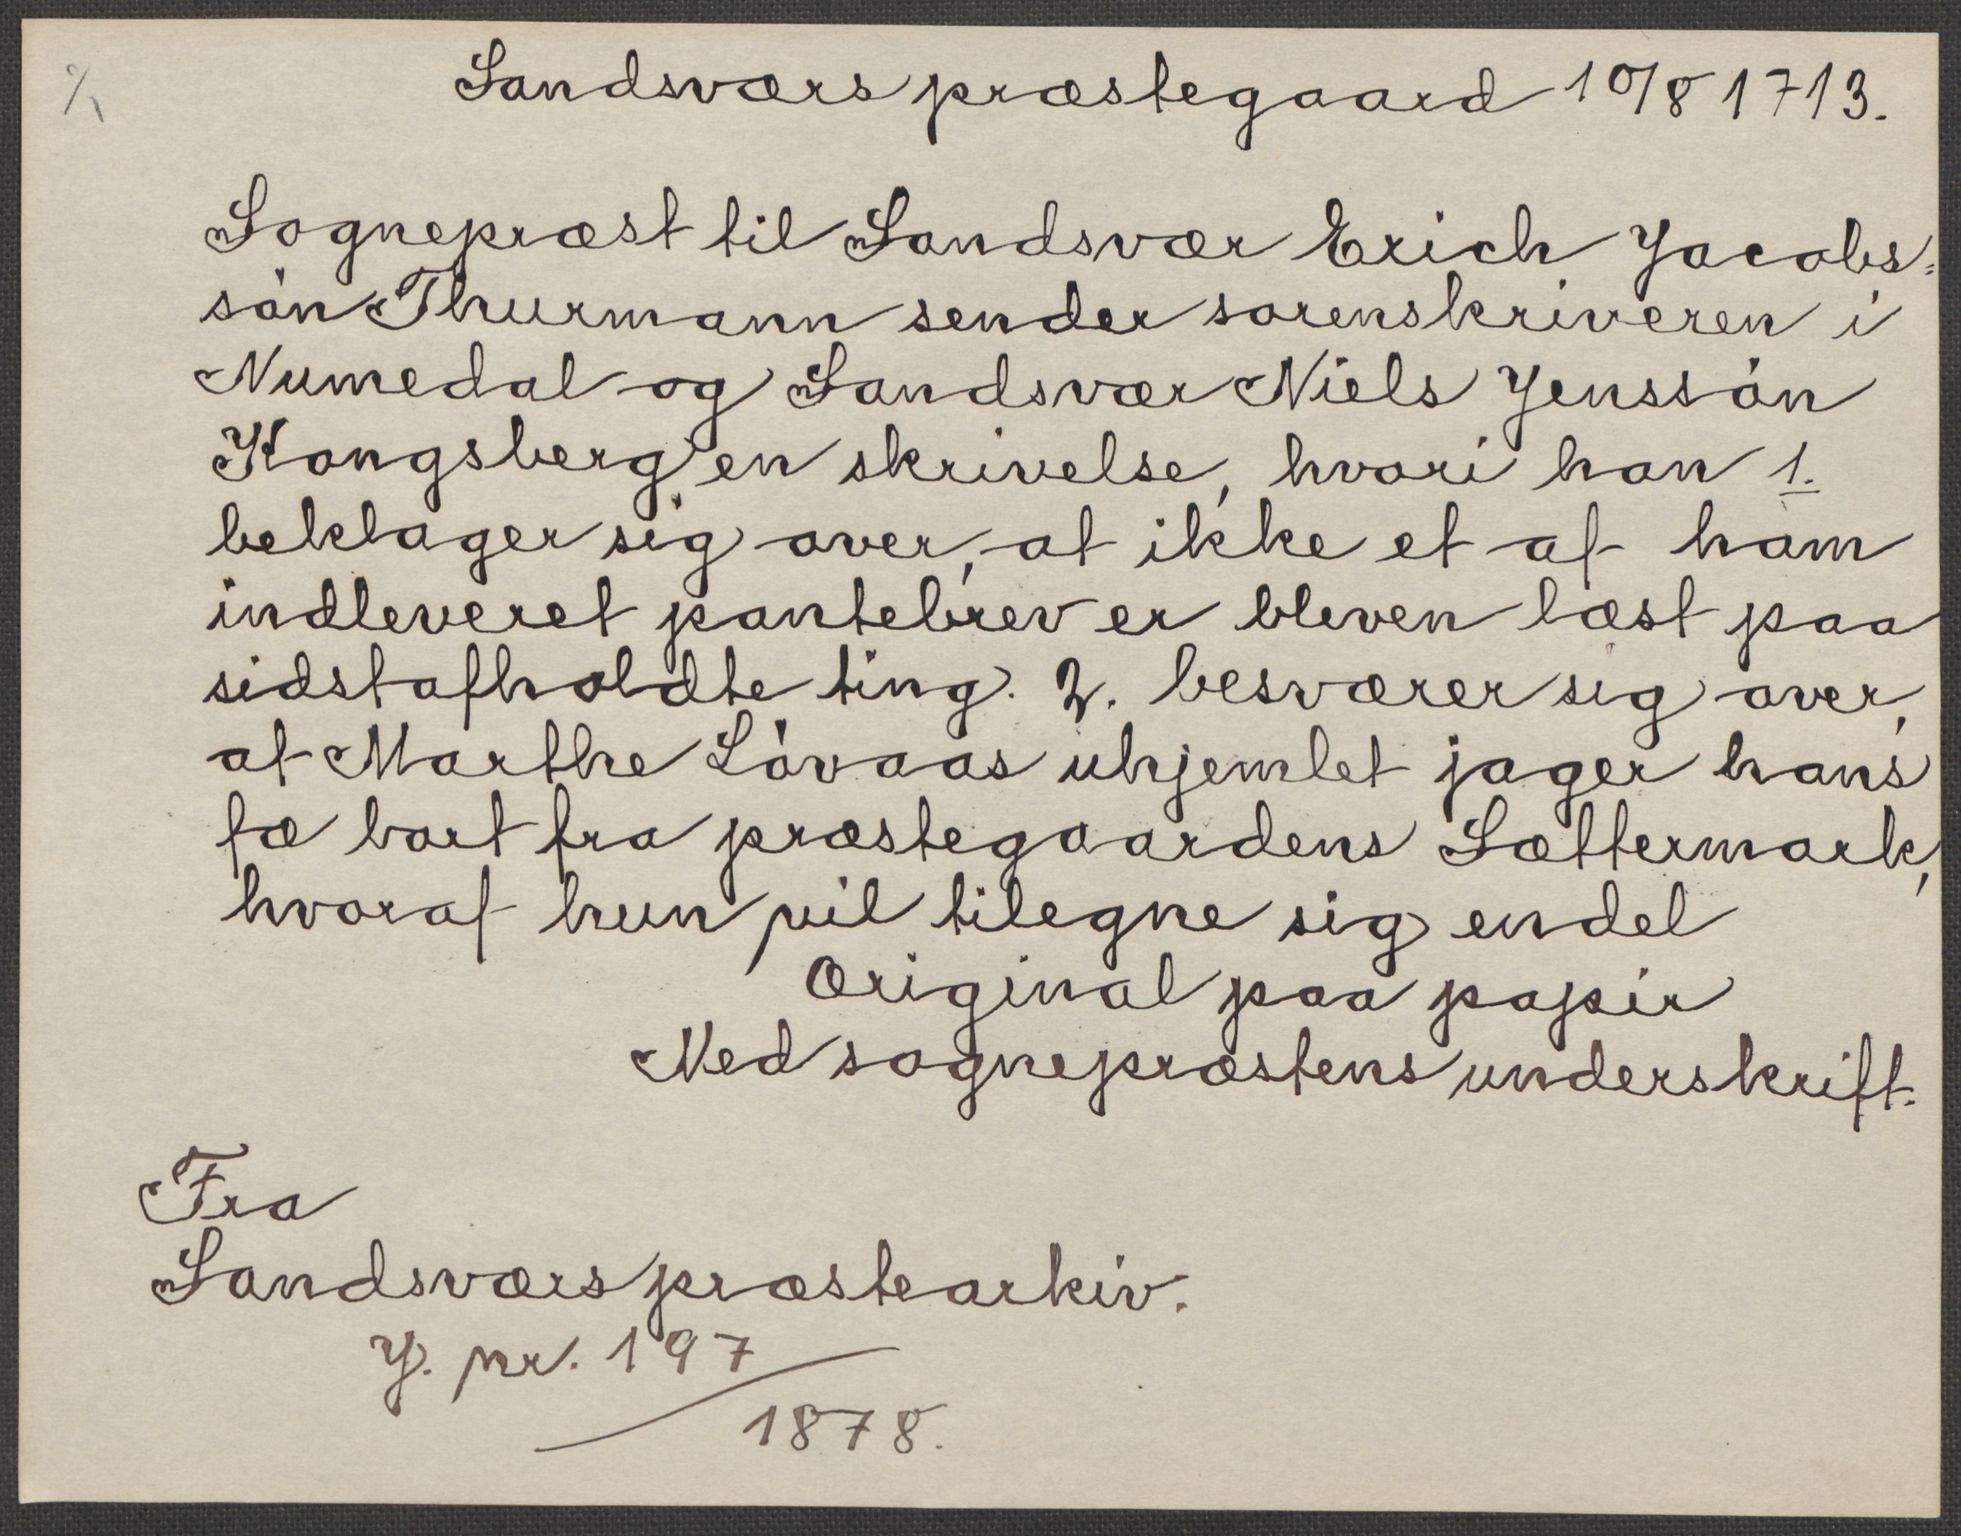 Sandsværs præstegaard 10/8 1713.
Sognepræst til Sandsvær Erich Jacobs=
sön Thurmann sender sorenskriveren i
Numedal og Sandsvær Niels Jenssön
Kongsberg en skrivelse, hvori han 1.
beklager sig over, at ikke et af ham
indleveret pantebrev er bleven læst paa
sidstafholdte ting. 2. besværer sig over,
at Marthe Lövaas uhjemlet jager hans
fæ bort fra præstegaardens Sættermark,
hvoraf hun vil tilegne sig endel
Original paa papir
Med sognepræstens underskrift.
Fra
Sandsværs præstearkiv.
J. nr. 197
1878.